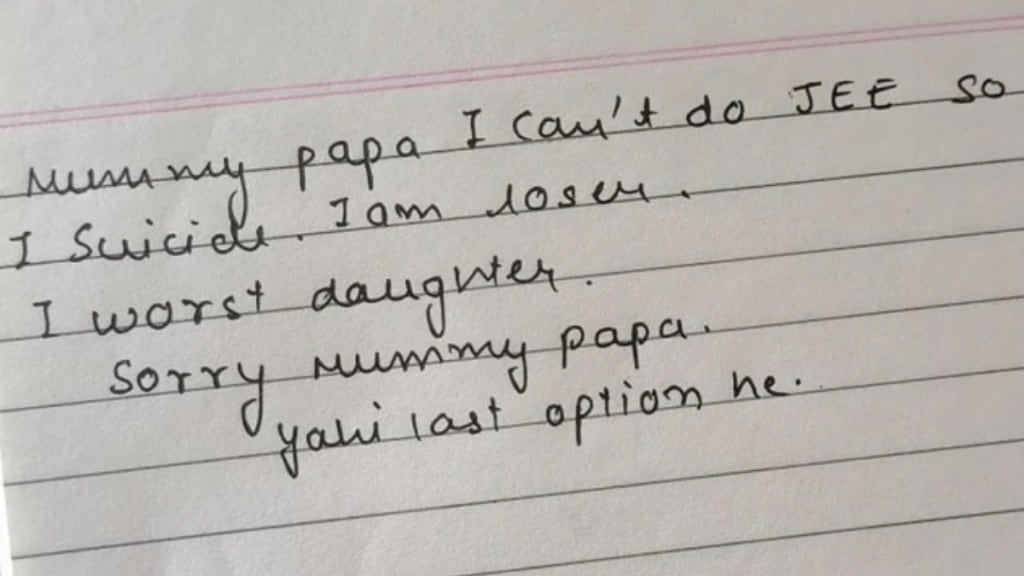 Mummy papa I can't do JEE so
I suicide. I am loser.
I worst daughter.
Sorry mummy papa.
yahi last option he.